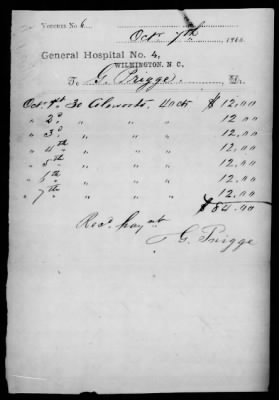 Voucher No. 6
Octr 7th 186
General Hospital No. 4,
WILMINGTON, N. C.,
To G. Prigge. Dr.
Octr 1st 30 40cts $ 12.00
" 2d " " " 12.00
" 3d " " " 12.00
" 4th " " " 12.00
" 5th " " " 12.00
" 6th " " " 12.00
" 7th " " " 12.00
$ 84.00
Recd payt
G. Prigge